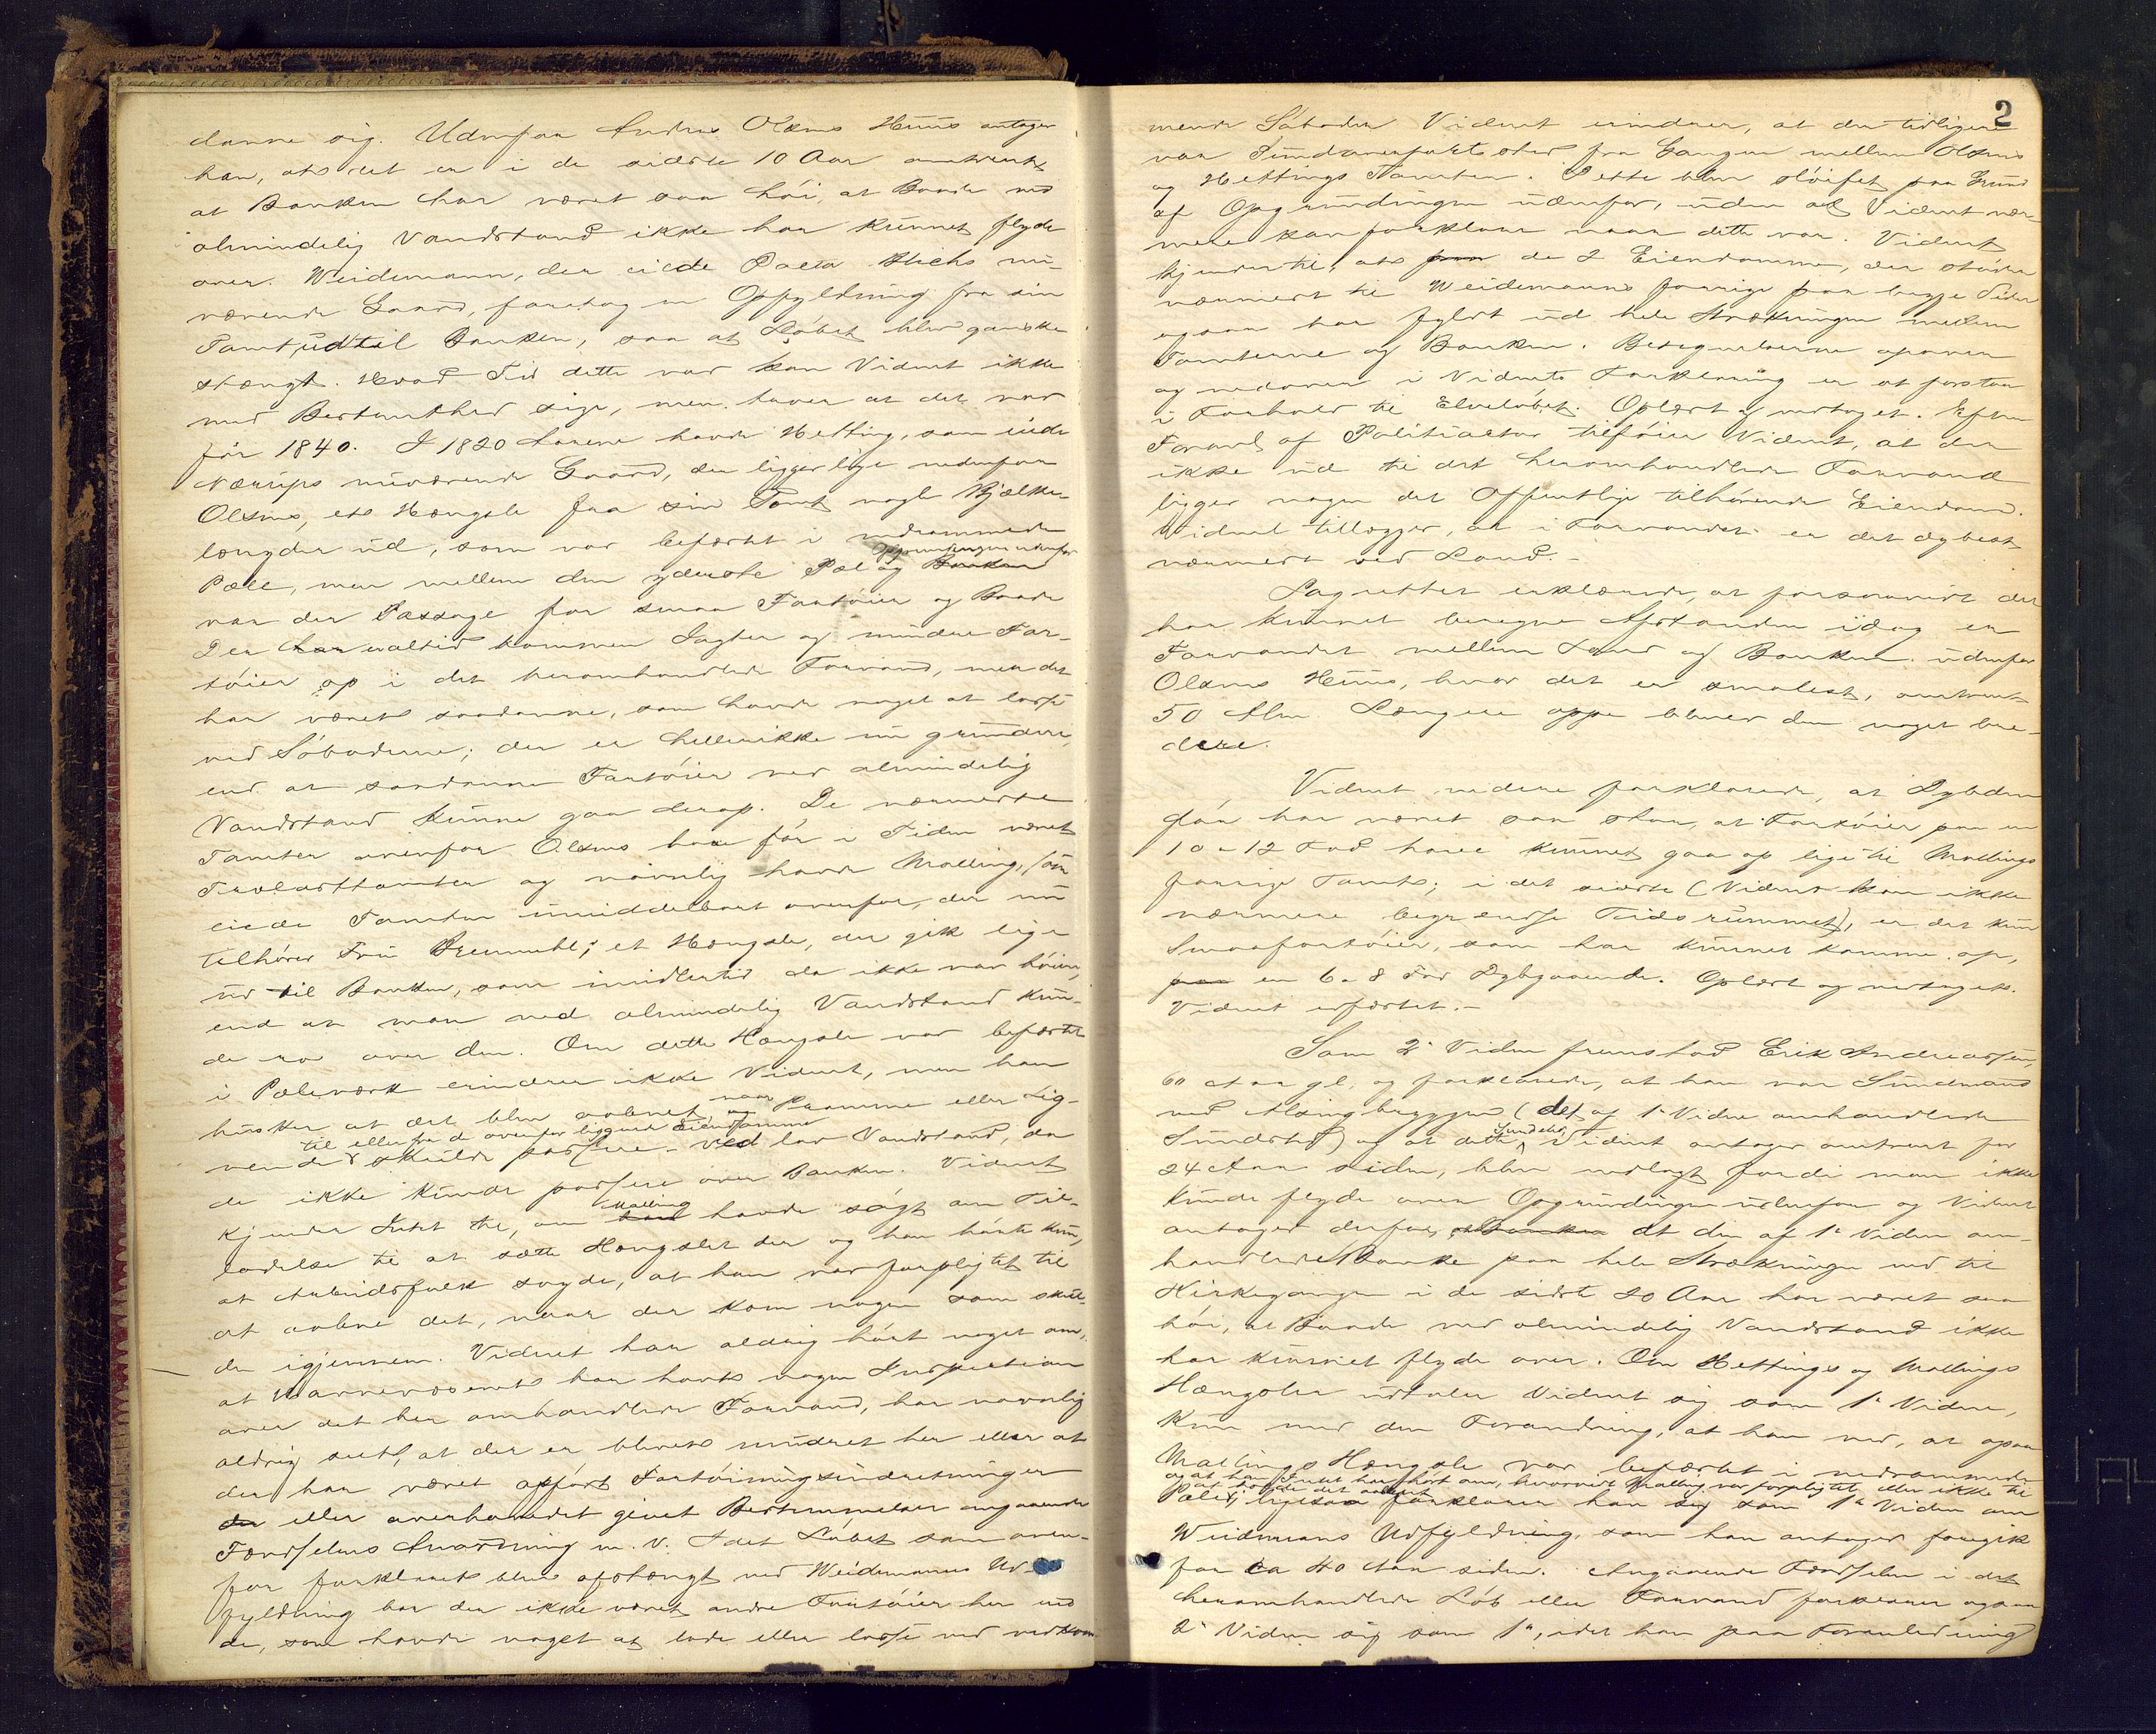 danne sig. Udenfor Anders Olsens Huus antager
han, at det er i de sidste 10 Aar omtrent,
at Banken har været saa høi, at Baade ved
almindelig Vandstand ikke har kunnet flyde
over. Weidemann, der eiede Poeta Blichs nu-
værende Gaard, foretog en Opfyldning fra sin
Tomt udtil Banken, saa at Løbet blev ganske
stængt. Hvad Tid dette var kan Vidnet ikke
med Bestemthed sige, men troer at det var
før 1840. I 1820 Aarene havde Hetting, som eiede
Nærups nuværende Gaard, der ligger lige nedenfor
Olsens, et Hængsle fra sin Tomt nogle Bjælke-
længder ud, som var befæstet i nedrammede
Pæle, men mellem den yderste Pæl og Opgrundingen udenfor
var der Passage for smaa Fartøier og Baade
Der har altid kommen Jagter og mindre Far-
tøier op i det heromhandlede Farvand, men det
har været saadanne, som havde noget at losse
ved Søboderne; der er hellerikke nu grundere,
end at saadanne Fartøier ved almindelig
Vandstand kunne gaa derop. De nærmeste
Tomter ovenfor Olsens have før i Tiden været
Trælasttomter og navnlig havde Malling, som
eiede Tomten umiddelbart ovenfor, der nu
tilhører Fru Bremuhl; et Hængsle, der gik lige
ud til Banken, som imidlertid da ikke var høiere,
end at man ved almindelig Vandstand kun-
de ro over den. Om dette Hængsle var befæstet
i Pæleværk erindrer ikke Vidnet, men han
husker at det blev aabnet, naar Pramme eller Lig-
til eller fra de ovenfor liggende Eiendomme
nende skulde passere ved lav Vandstand, da
de ikke kunde passere over Banken. Vidnet
kjender Intet til, om Malling havde søgt om Til-
ladelse til at sætte Hængslet der og han hørte kun,
at Arbeidsfolk sagde, at han var forpligtet til
at aabne det, naar der kom nogen som skul-
de igjennem. Vidnet har aldrig hørt noget om,
at Havnevæsenet har havt nogen Inspection
over det her omhandlede Farvand, har navnlig
aldrig seet, at der er blevet mudret her eller at
der har været opført Fortøiningsindretninger
eller overhovedet givet Bestemmelser angaaende
Færdselens Anordning m. v. I det Løbet som oven-
for forklaret blev afstængt ved Weidemanns Ud-
fyldning har der ikke været andre Fartøier her end
de, som havde noget at lade eller losse ved vedkom-
2
mende Søboder Vidnet erindrer, at der tidligere
var Sundmandssted fra Gangen mellem Olsens
og Hettings Tomter. Dette blev sløifet paa Grund
af Opgrundingen udenfor, uden at Vidnet nær-
mere kan forklare naar dette var. Vidnet
kjender til, at de 2 Eiendomme, der støder
nærmest til Weidemanns forrige paa begge Sider
ogsaa har fyldt ud hele Strækningen mellem
Tomterne og Banken. Betegnelserne ovenen
og nedenen i Vidnets Forklaring er at forstaa
i Forhold til Elveløbet. Oplæst og vedtaget. Efter
Forarl. af Politiactor tilføier Vidnet, at der
ikke ud til det heromhandlede Farvand
ligger nogen det Offentlige tilhørende Eiendom.
Vidnet tillægger, at i Farvandet er det dybest
nærmest ved Land.
Lagrettet erklærede, at forsaavidt det
har kunnet beregne Afstanden idag er
Farvandet mellem Land og Banken udenfor
Olsens Huus, hvor det er smalest, omtrent
50 Alen Længere oppe bliver den noget bre-
dere.
Vidnet videre forklarede, at Dybden
før har været saa stor, at Fartøier paa en
10 a 12 Fod have kunnet gaa op lige til Mallings
forrige Tomt; i det sidste (Vidnet kan ikke
nærmere begrændse Tidsrummet), er det kun
Smaafartøier, som har kunnet komme op,
en 6 a 8 Fod Dybgaaende. Oplæst og vedtaget.
Vidnet erfæstet.
Som 2' Vidne fremstod Erik Andreassen,
60 Aar gl. og forklarede, at han var Sundmand
ved Alsingbryggen (det af 1' Vidne omhandlede
Sundsted) og at dette Sundsted, Vidnet antager omtrent for
24 Aar siden, blev nedlagt fordi man ikke
kunde flyde over Opgrundingen udenfor og Vidnet
antager derfor, at den af 1' Vidne om-
handlede Banke paa hele Strækningen ned til
Kirkegangen i de sidste 20 Aar har været saa
høi, at Baade ved almindelig Vandstand ikke
har kunnet flyde over. Om Hettings og Mallings
Hængsler udtaler Vidnet sig som 1' Vidne,
kun med den Forandring, at han ved, at ogsaa
Mallings Hængsle var befæstet i nedrammede
og at han Intet har hørt om, hvorvidt Malling var forpligtet eller ikke til
at holde det aabent
Pæle, ligesaa forklarer han sig som 1' Vidne om
Weidemans Udfyldning, som han antager foregik
for ca 40 Aar siden. Angaaende Færdselen i det
heromhandlede Løb eller Farvand forklarer ogsaa
2' Vidne sig som 1', idet han paa Foranledning